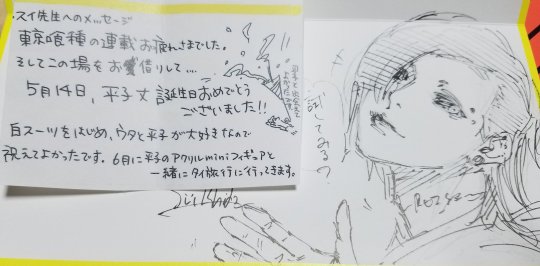 スイ先生へのメッセージ
東京喰種の連載お疲れさまでした。
そしてこの場をお借りして…
5月14日、平子丈誕生日おめでとう
ございました!!
白スーツをはじめ、ウタと平子が大好きなので
祝えてよかったです。6月に平子のアクリルminiフィギュアと
一緒にタイ旅行に行ってきます。
試してみる?